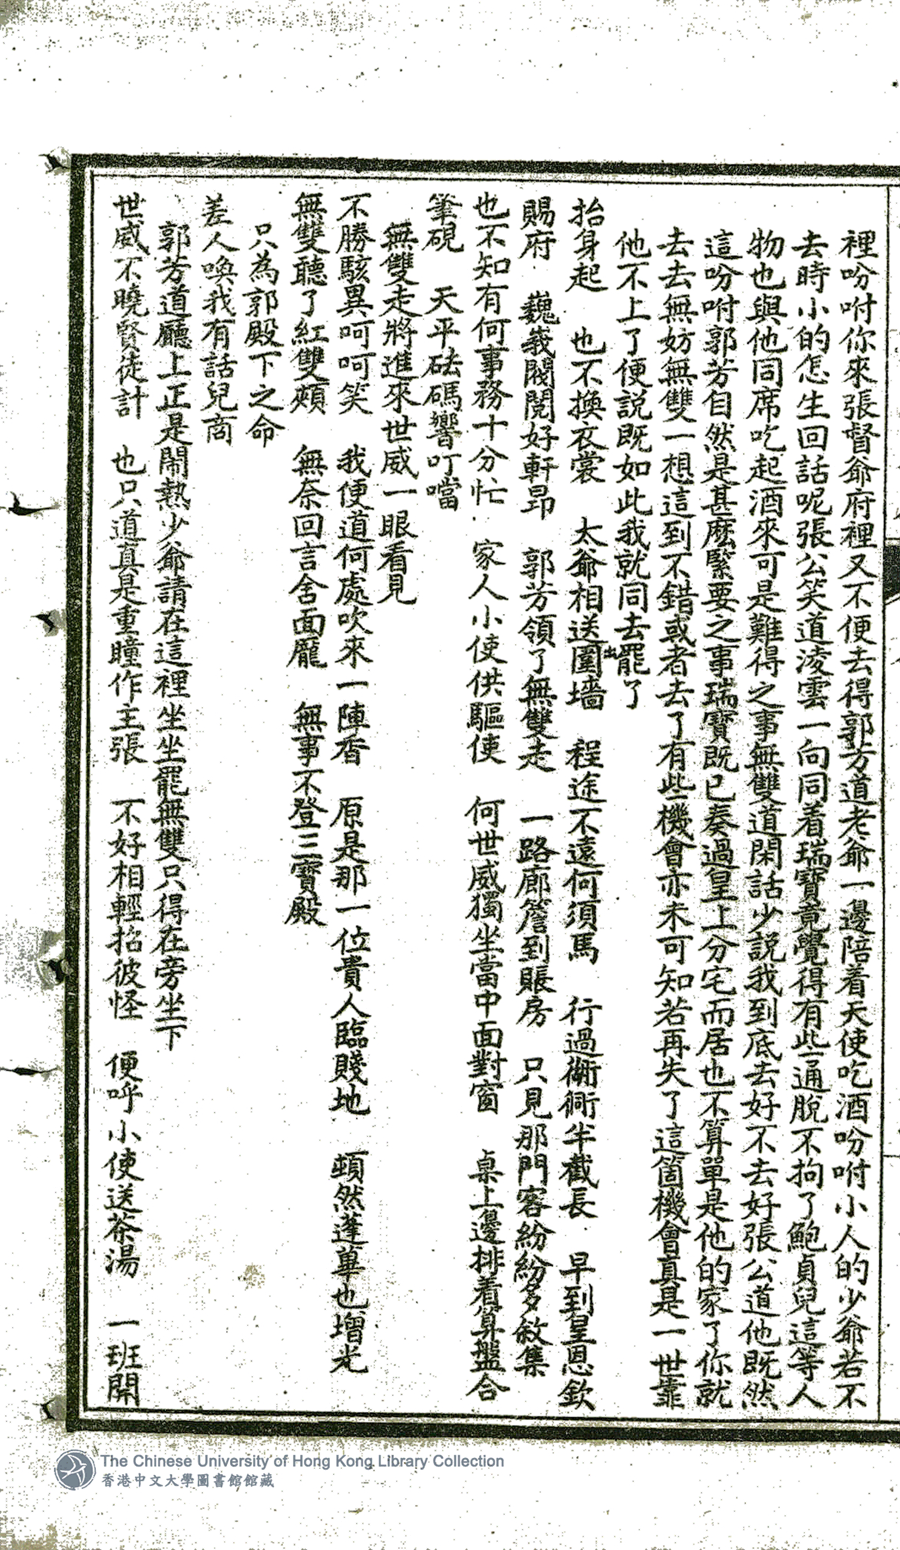 裡吩咐你來張督爺府裡又不便去得郭芳道老爺一邊陪着天使吃酒吩咐小人的少爺若不
去時小的怎生回話呢張公笑道淩雲一向同着瑞寶竟覺得有些通脫不拘了鮑貞兒這等人
物也與他同席吃起酒來可是難得之事無雙道閑話少説我到底去好不去好張公道他既然
這吩咐郭芳自然是甚麽緊要之事瑞寶既已奏過皇上分宅而居也不算單是他的家了你就
去去無妨無雙一想這到不錯或者去了有些機會亦未可知若再失了這箇機會真是一世靠
他不上了便説既如此我就同去罷了
抬身起 也不換衣裳 太爺相送出圍墻 程途不遠何須馬 行過衚衕半截長 早到皇恩欽
賜府 巍峩閥閱好軒昂 郭芳領了無雙走 一路廊簷到賬房 只見那門客紛紛多敘集
也不知有何事務十分忙 家人小使供驅使 何世威獨坐當中面對窗 桌上邊排着算盤合
筆硯 天平砝碼響叮噹
無雙走將進來世威一眼看見
不勝駭異呵呵笑 我便道何處吹來一陣香 原是那一位貴人臨賤地 頓然蓬蓽也增光
無雙聽了紅雙頰 無奈回言舍面龐 無事不登三寶殿
只為郭殿下之命
差人喚我有話兒商
郭芳道廳上正是鬧熱少爺請在這裡坐坐罷無雙只得在旁坐下
世威不曉賢徒計 也只道真是重瞳作主張 不好相輕招彼怪 便呼小使送茶湯 一班閑
The Chinese University of Hong Kong Library Collection
香港中文大學圖書館館藏